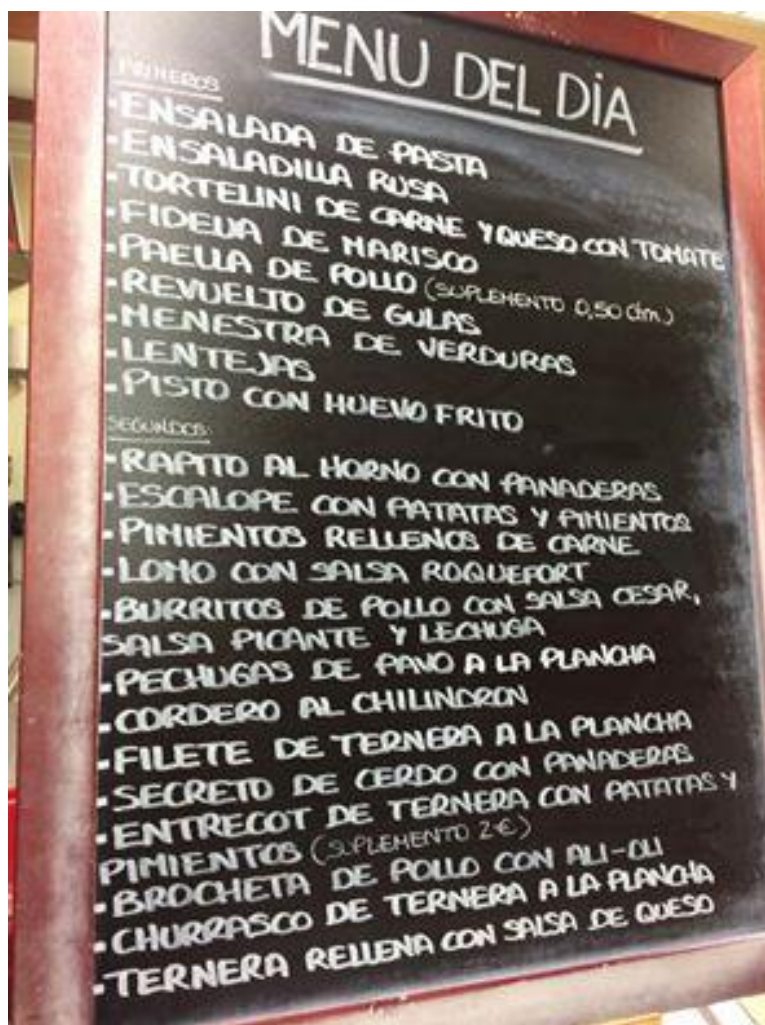 MENU DEL DÍA
PRIMEROS
·ENSALADA DE PASTA
·ENSALADILLA RUSA
·TORTELINI DE CARNE Y QUESO CON TOMATE
·FIDEUA DE MARISCO
·PAELLA DE POLLO (SUPLEMENTO 0,50 ctm.)
·REVUELTO DE GULAS
·MENESTRA DE VERDURAS
·LENTEJAS
·PISTO CON HUEVO FRITO
SEGUNDOS:
·RAPITO AL HORNO CON PANADERAS
·ESCALOPE CON PATATAS Y PIMIENTOS
·PIMIENTOS RELLENOS DE CARNE
·LOMO CON SALSA ROQUEFORT
·BURRITOS DE POLLO CON SALSA CESAR,
SALSA PICANTE Y LECHUGA
·PECHUGAS DE PAVO A LA PLANCHA
·CORDERO AL CHILINDRON
·FILETE DE TERNERA A LA PLANCHA
·SECRETO DE CERDO CON PANADERAS
·ENTRECOT DE TERNERA CON PATATAS Y
PIMIENTOS (SUPLEMENTO 2€)
·BROCHETA DE POLLO CON ALI-OLI
·CHURRASCO DE TERNERA A LA PLANCHA
·TERNERA RELLENA CON SALSA DE QUESO